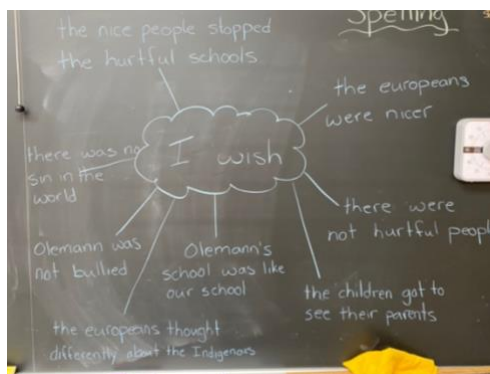 Spelling
the nice people stopped
the hurtful schools.
the europeans
were nicer
I wish
there was no
sin in the
world
there were
not hurtful peopl
Olemann was
not bullied
Olemann's
school was like
our school
the children got to
see their parents
the europeans thought
differently about the Indigenous